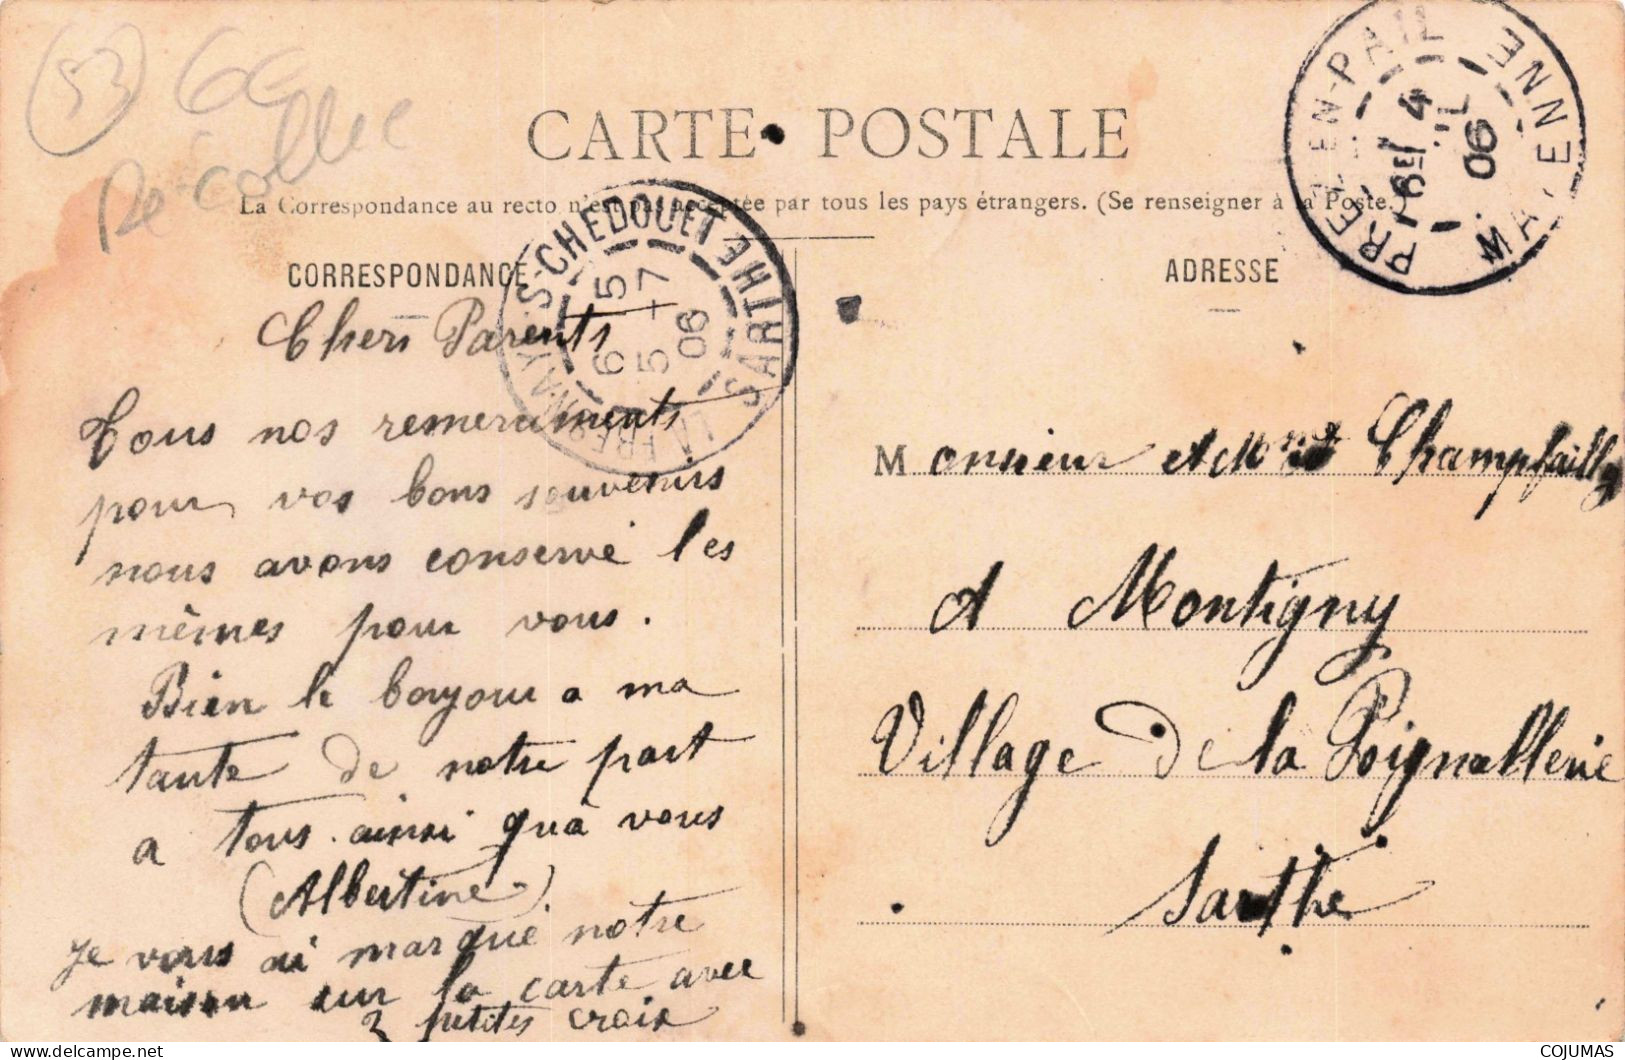 (53) 6E
CARTE POSTALE
La Correspondance au recto n'est pas acceptée par tous les pays étrangers. (Se renseigner à la Poste.)
PRE-EN-PAIL
MAYENNE
16E 4
JUIL
06
LA FRESNAYE-S-CHEDOUET
SARTHE
6 15
5 -7
06
CORRESPONDANCE
Chers Parents
Tous nos remerciments
pour vos bons souvenirs
nous avons conservé les
mêmes pour vous.
Bien le bonjour a ma
tante de notre part
a tous. ainsi qu'à vous
(Albertine).
Je vous ai marqué notre
maison sur la carte avec
2 petites croix
ADRESSE
Monsieur et Mme Champfailly
A Montigny
Village de la Poignallerie
Sarthe
www.delcampe.net
COJUMAS